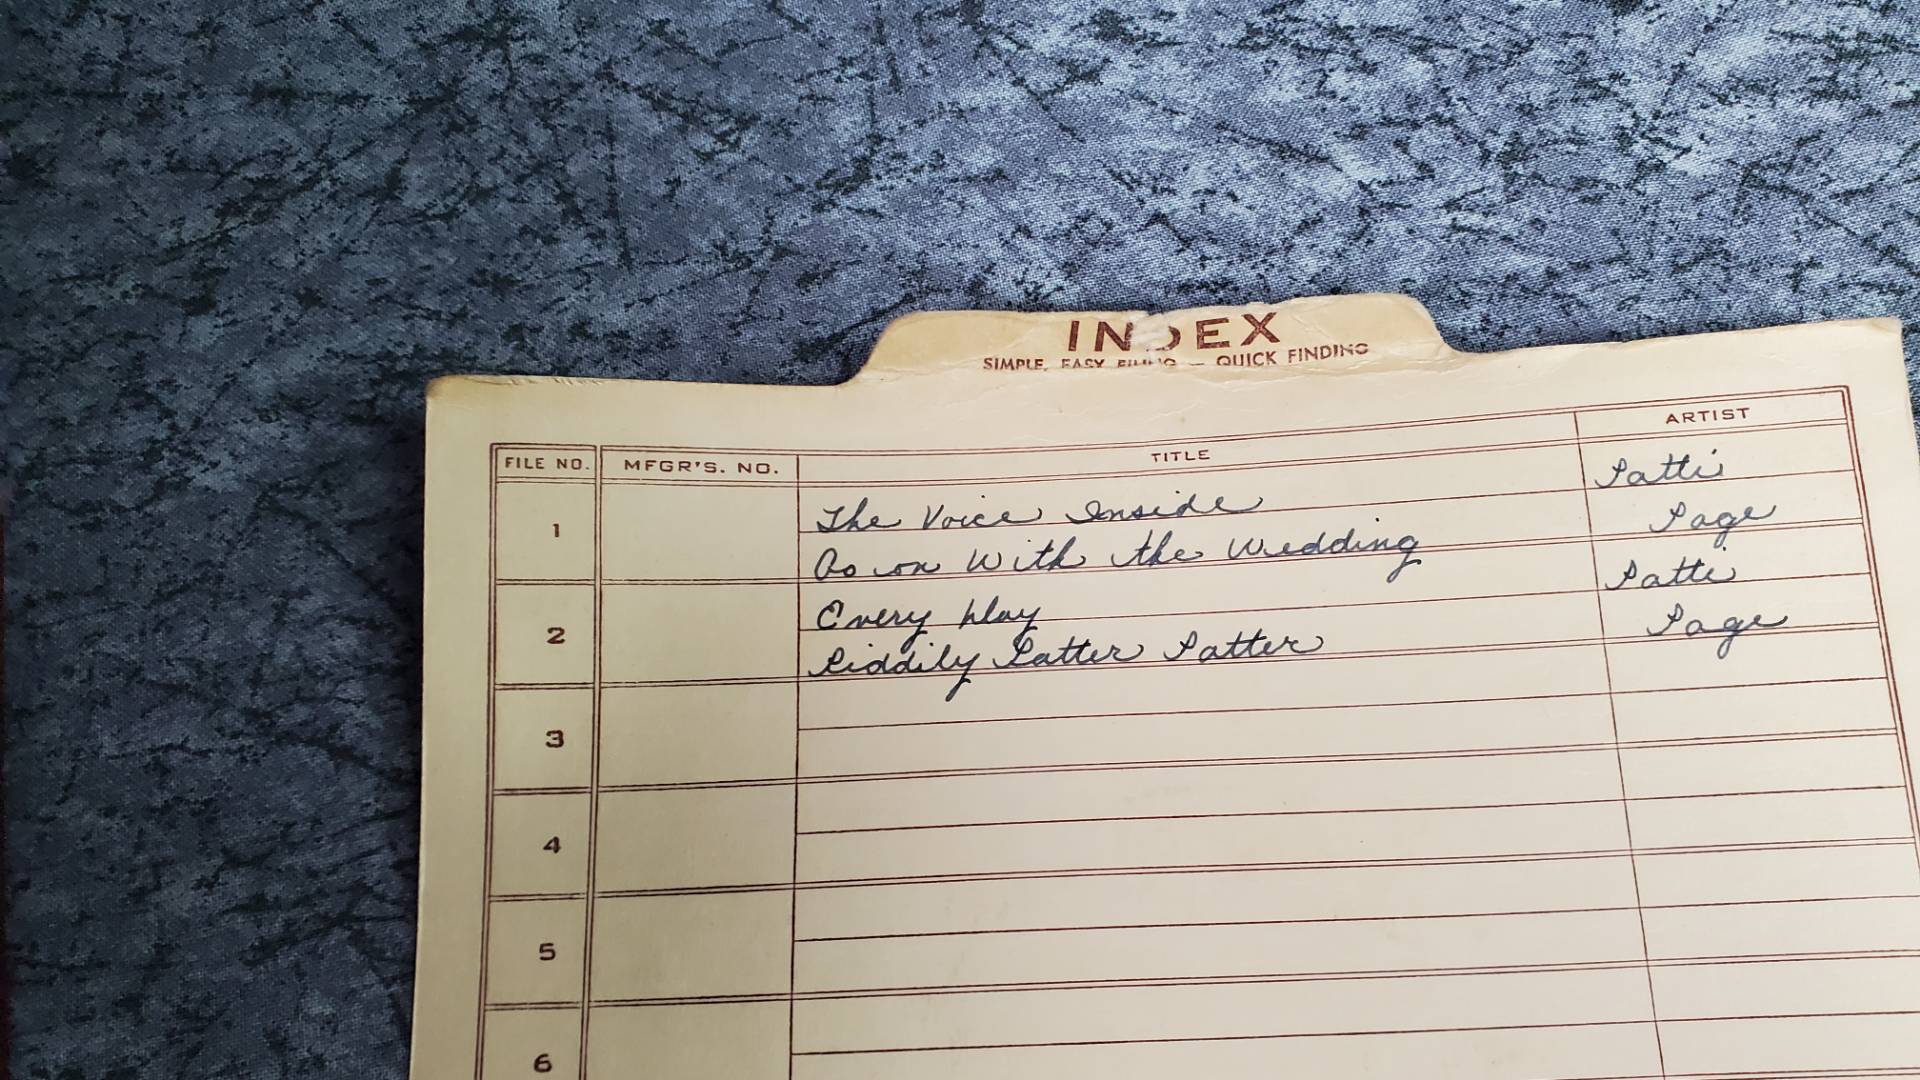 INDEX
SIMPLE, EASY FILING — QUICK FINDING
FILE NO. MFGR'S. NO. TITLE ARTIST
1 The Voice Inside Patti
Go on With the Wedding Page
2 Every Day Patti
Piddily Patter Patter Page
3
4
5
6